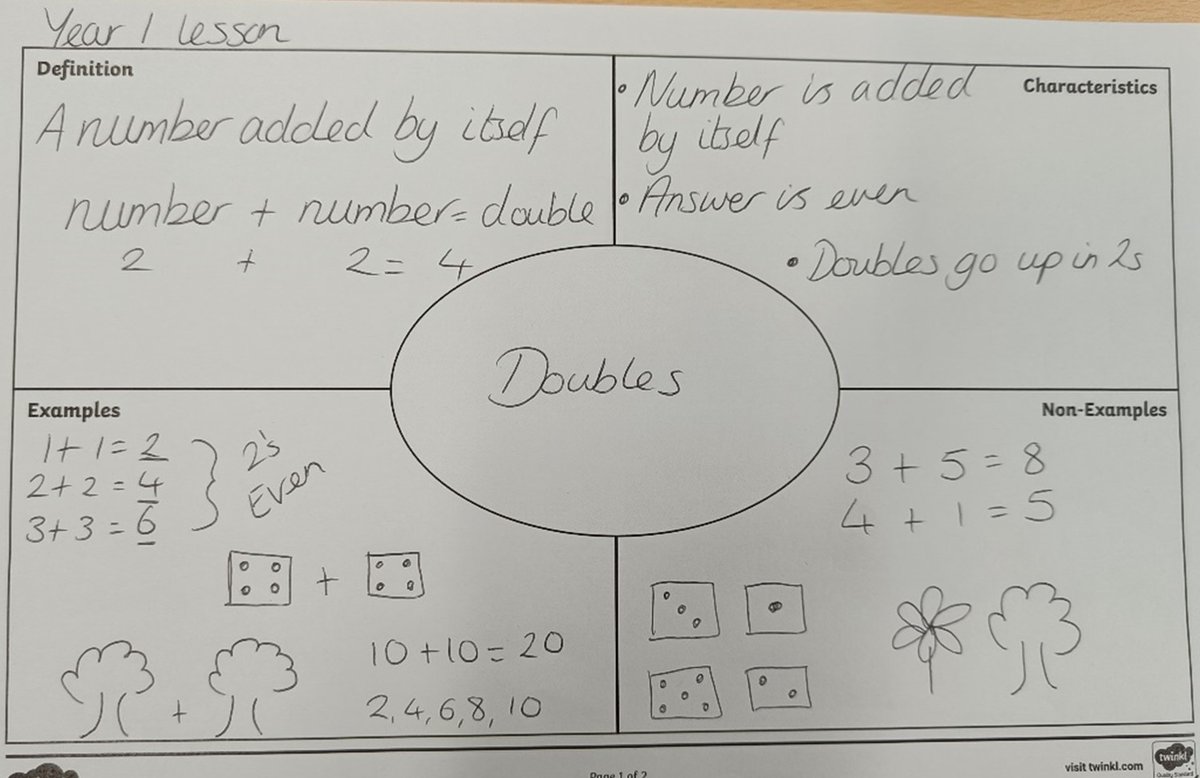 Year 1 lesson
Definition
A number added by itself
number + number = double
2 + 2 = 4
Characteristics
• Number is added
by itself
• Answer is even
• Doubles go up in 2s
Doubles
Examples
1 + 1 = 2
2 + 2 = 4
3 + 3 = 6
2's
Even
+
+
10 + 10 = 20
2, 4, 6, 8, 10
Non-Examples
3 + 5 = 8
4 + 1 = 5
Page 1 of 2
visit twinkl.com
twinkl